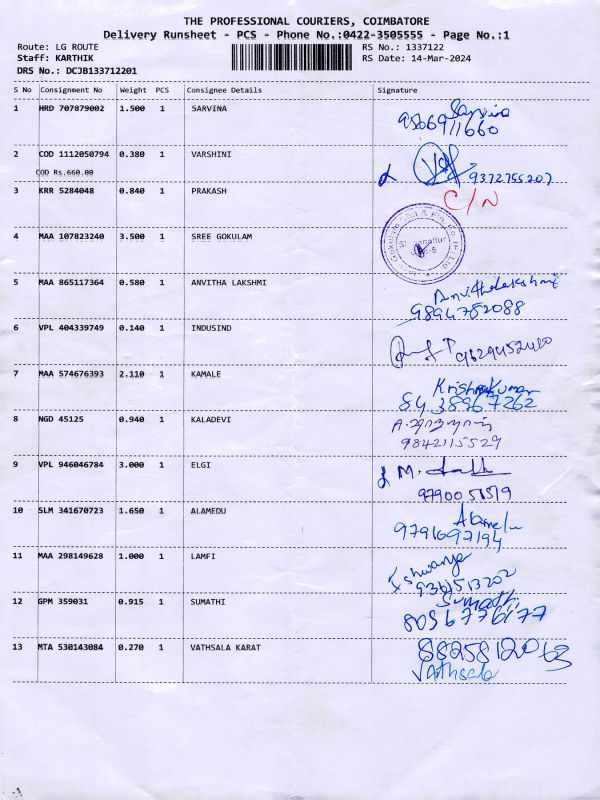 THE PROFESSIONAL COURIERS, COIMBATORE
Delivery Runsheet - PCS - Phone No.:0422-3505555 - Page No.:1
Route: LG ROUTE RS No.: 1337122
Staff: KARTHIK RS Date: 14-Mar-2024
DRS No.: DCJB133712201
S No Consignment No Weight PCS Consignee Details Signature
1 HRD 707879002 1.500 1 SARVINA Sarvina
2 COD 1112050794 0.380 1 VARSHINI 9372755207
COD Rs.660.00
3 KRR 5284048 0.840 1 PRAKASH C/N
4 MAA 107823240 3.500 1 SREE GOKULAM
5 MAA 865117364 0.580 1 ANVITHA LAKSHMI Anvithalakshmi
9894782088
6 VPL 404339749 0.140 1 INDUSIND
7 MAA 574676393 2.110 1 KAMALE Krishnakumar
8438967262
8 NGD 45125 0.940 1 KALADEVI
9842115529
9 VPL 946046784 3.000 1 ELGI
10 SLM 341670723 1.650 1 ALAMEDU Alamelu
9791697194
11 MAA 298149628 1.000 1 LAMFI Ishwarya
9361513202
12 GPM 359031 0.915 1 SUMATHI Sumathi
8056776177
13 MTA 530143084 0.270 1 VATHSALA KARAT 8825812063
Vathsala